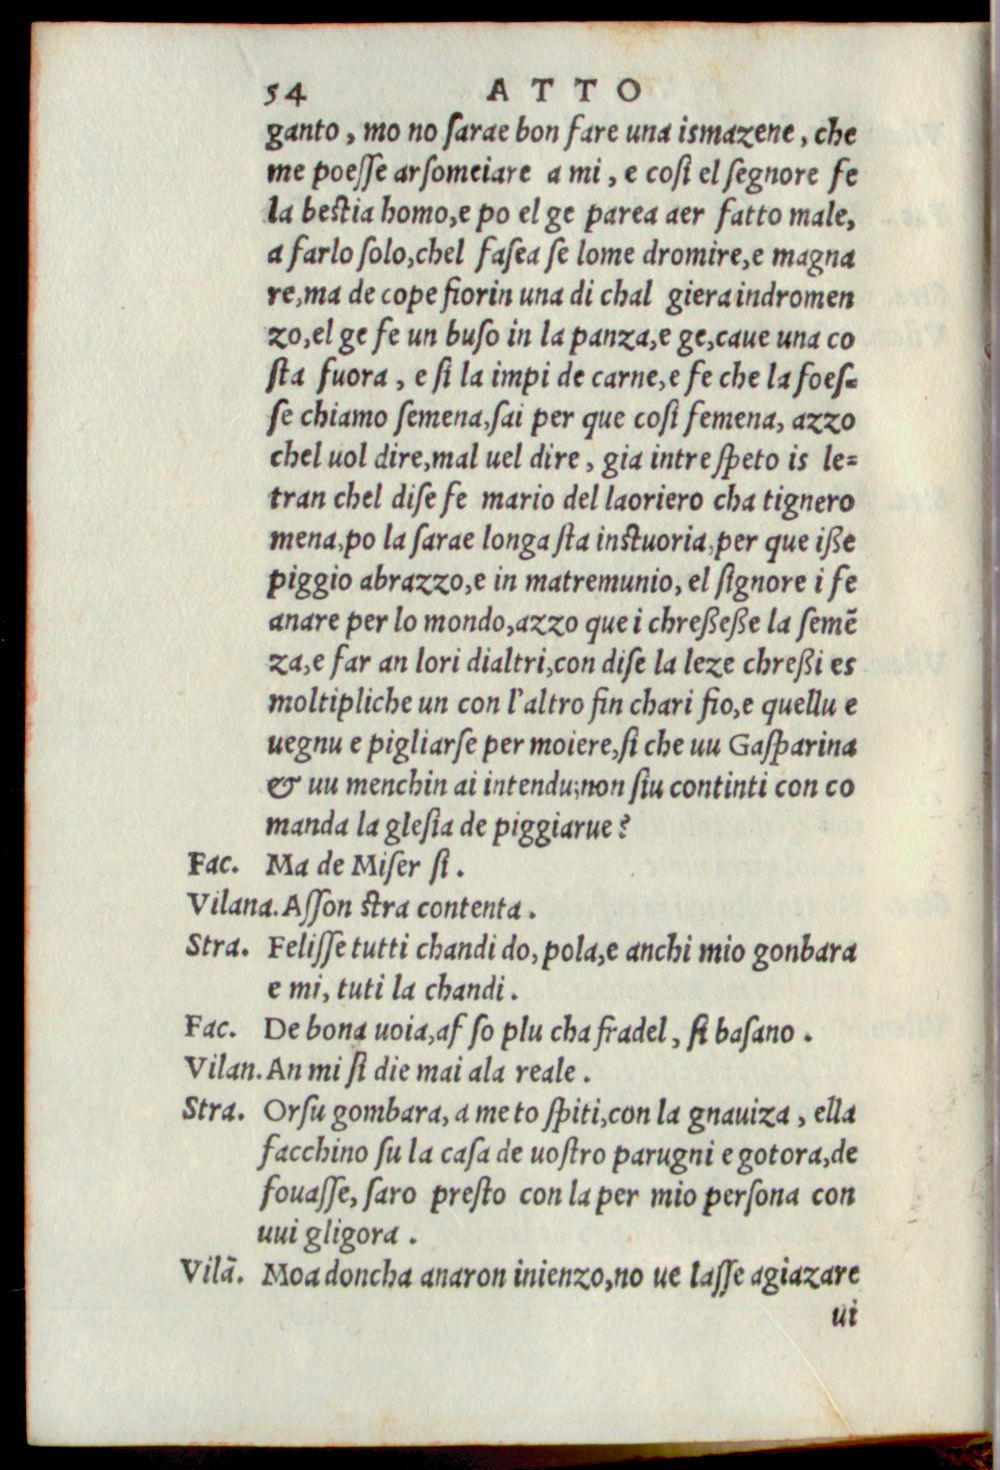 54 ATTO
ganto, mo no ſarae bon fare una ismazene, che
me poeſſe arſomeiare a mi, e coſi el ſegnore fe
la beſtia homo,e po el ge parea aer fatto male,
a farlo ſolo,chel faſea ſe lome dromire,e magna
re,ma de cope fiorin una di chal giera indromen
zo,el ge fe un buſo in la panza,e ge,caue una co
ſta fuora, e ſi la impi de carne,e fe che la foeſ=
ſe chiamo ſemena,ſai per que coſi femena, azzo
chel uol dire,mal uel dire, gia intreſpeto is le=
tran chel diſe fe mario del laoriero cha tignero
mena,po la ſarae longa ſta inſtuoria,per que iße
piggio abrazzo,e in matremunio, el ſignore i fe
anare per lo mondo,azzo que i chreßeße la ſemẽ
za,e far an lori dialtri,con diſe la leze chreßi es
moltipliche un con l'altro fin chari fio,e quellu e
uegnu e pigliarſe per moiere,ſi che uu Gaſparina
& uu menchin ai intendu;non ſiu continti con co
manda la gleſia de piggiarue?
Fac. Ma de Miſer ſi.
Vilana. Aſſon ſtra contenta.
Stra. Feliſſe tutti chandi do, pola,e anchi mio gonbara
e mi, tuti la chandi.
Fac. De bona uoia,af ſo plu cha fradel, ſi baſano.
Vilan. An mi ſi die mai ala reale.
Stra. Orſu gombara, a me to ſpiti,con la gnauiza, ella
facchino ſu la caſa de uoſtro parugni e gotora,de
fouaſſe, ſaro preſto con la per mio perſona con
uui gligora.
Vilã. Moa doncha anaron inienzo,no ue laſſe agiazare
ui